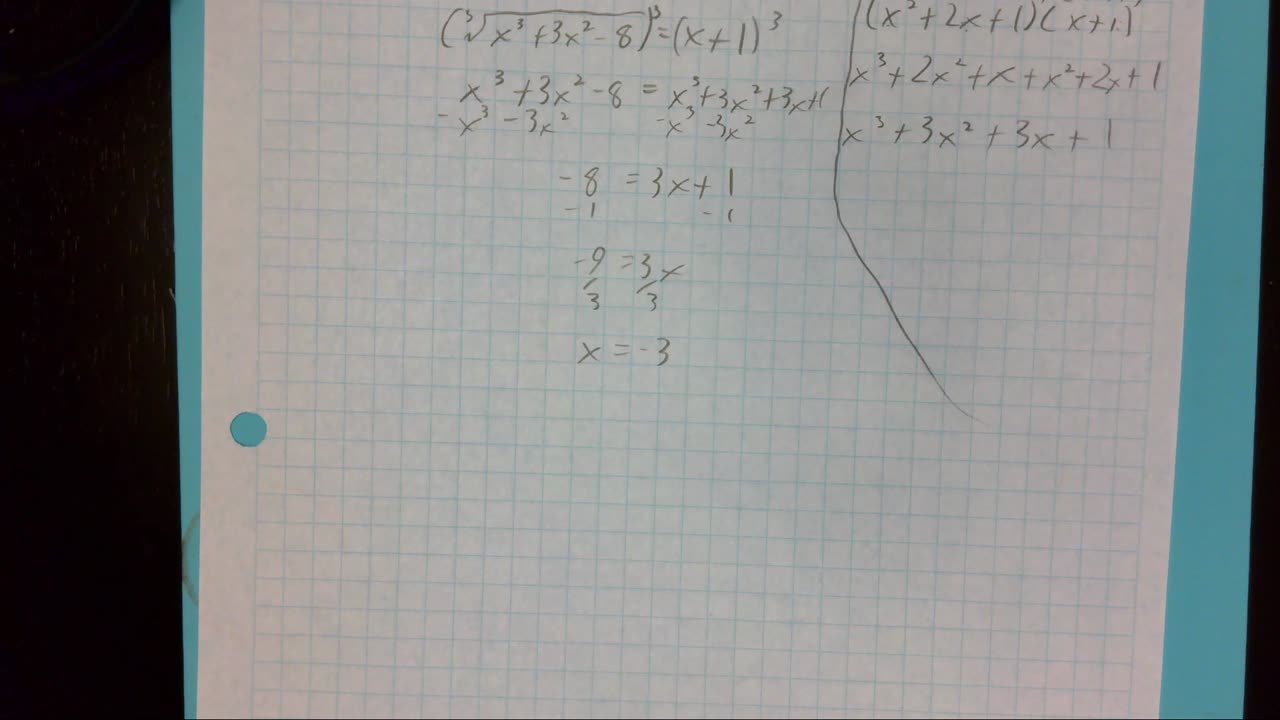 (∛(x³+3x²-8))³=(x+1)³
x³+3x²-8 = x³+3x²+3x+1
-x³-3x² -x³-3x²
-8 = 3x+1
-1 -1
-9 = 3x
/3 /3
x = -3
(x²+2x+1)(x+1)
x³+2x²+x+x²+2x+1
x³+3x²+3x+1